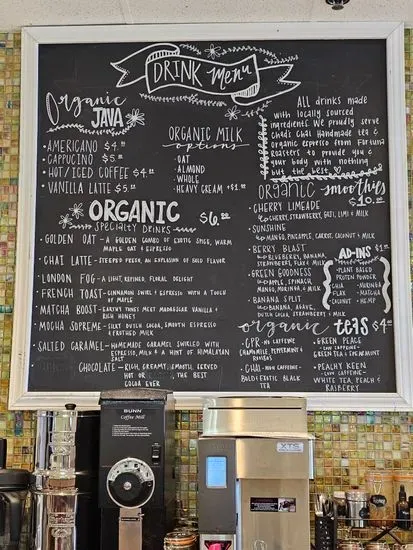 DRINK Menu
Organic
JAVA
• AMERICANO $4.
• CAPPUCINO $5.
• HOT/ICED COFFEE $4.
• VANILLA LATTE $5.
ORGANIC MILK
options
• OAT
• ALMOND
• WHOLE
• HEAVY CREAM +$1.
All drinks made
with locally sourced
ingredients. We proudly serve
Chad's Chai Handmade tea &
Organic espresso from Fortuna
Roasters to provide you &
your body with nothing
but the best
ORGANIC $6.
SPECIALTY DRINKS
• GOLDEN OAT - A GOLDEN COMBO OF EXOTIC SPICE, WARM
MAPLE OAT & ESPRESSO
• CHAI LATTE - STEEPED FRESH, AN EXPLOSION OF BOLD FLAVOR
• LONDON FOG - A LIGHT, REFINED, FLORAL DELIGHT
• FRENCH TOAST - CINNAMON SWIRL & ESPRESSO WITH A TOUCH
OF MAPLE
• MATCHA BOOST - EARTHY TONES MEET MADAGASCAR VANILLA &
RICH HONEY
• MOCHA SUPREME - SILKY DUTCH COCOA, SMOOTH ESPRESSO
& FROTHED MILK
• SALTED CARAMEL - HOMEMADE CARAMEL SWIRLED WITH
ESPRESSO, MILK & A HINT OF HIMALAYAN
SALT
CHOCOLATE - RICH, CREAMY, SMOOTH, SERVED
HOT OR THE BEST
COCOA EVER
ORGANIC smoothies
$10.
CHERRY LIMEADE
CHERRY, STRAWBERRY, GOJI, LIME & MILK
SUNSHINE
MANGO, PINEAPPLE, CARROT, COCONUT & MILK
BERRY BLAST
BLUEBERRY, BANANA,
STRAWBERRY, FLAX & MILK
GREEN GOODNESS
APPLE, SPINACH,
MANGO, MORINGA, & MILK
BANANA SPLIT
BANANA, AGAVE,
DUTCH COCOA, STRAWBERRY & MILK
AD-INS $1.
• PLANT BASED
PROTEIN POWDER
CHIA • MORINGA
FLAX • MATCHA
COCONUT • HEMP
organic teas $4.
• CPR - NO CAFFEINE
CHAMOMILE, PEPPERMINT &
ROOIBOS
• CHAI - HIGH CAFFEINE
BOLD & EXOTIC BLACK
TEA
• GREEN PEACE
LOW CAFFEINE
GREEN TEA & SPEARMINT
• PEACHY KEEN
LOW CAFFEINE
WHITE TEA, PEACH &
RASBERRY
BUNN
Coffee Mill
XTS